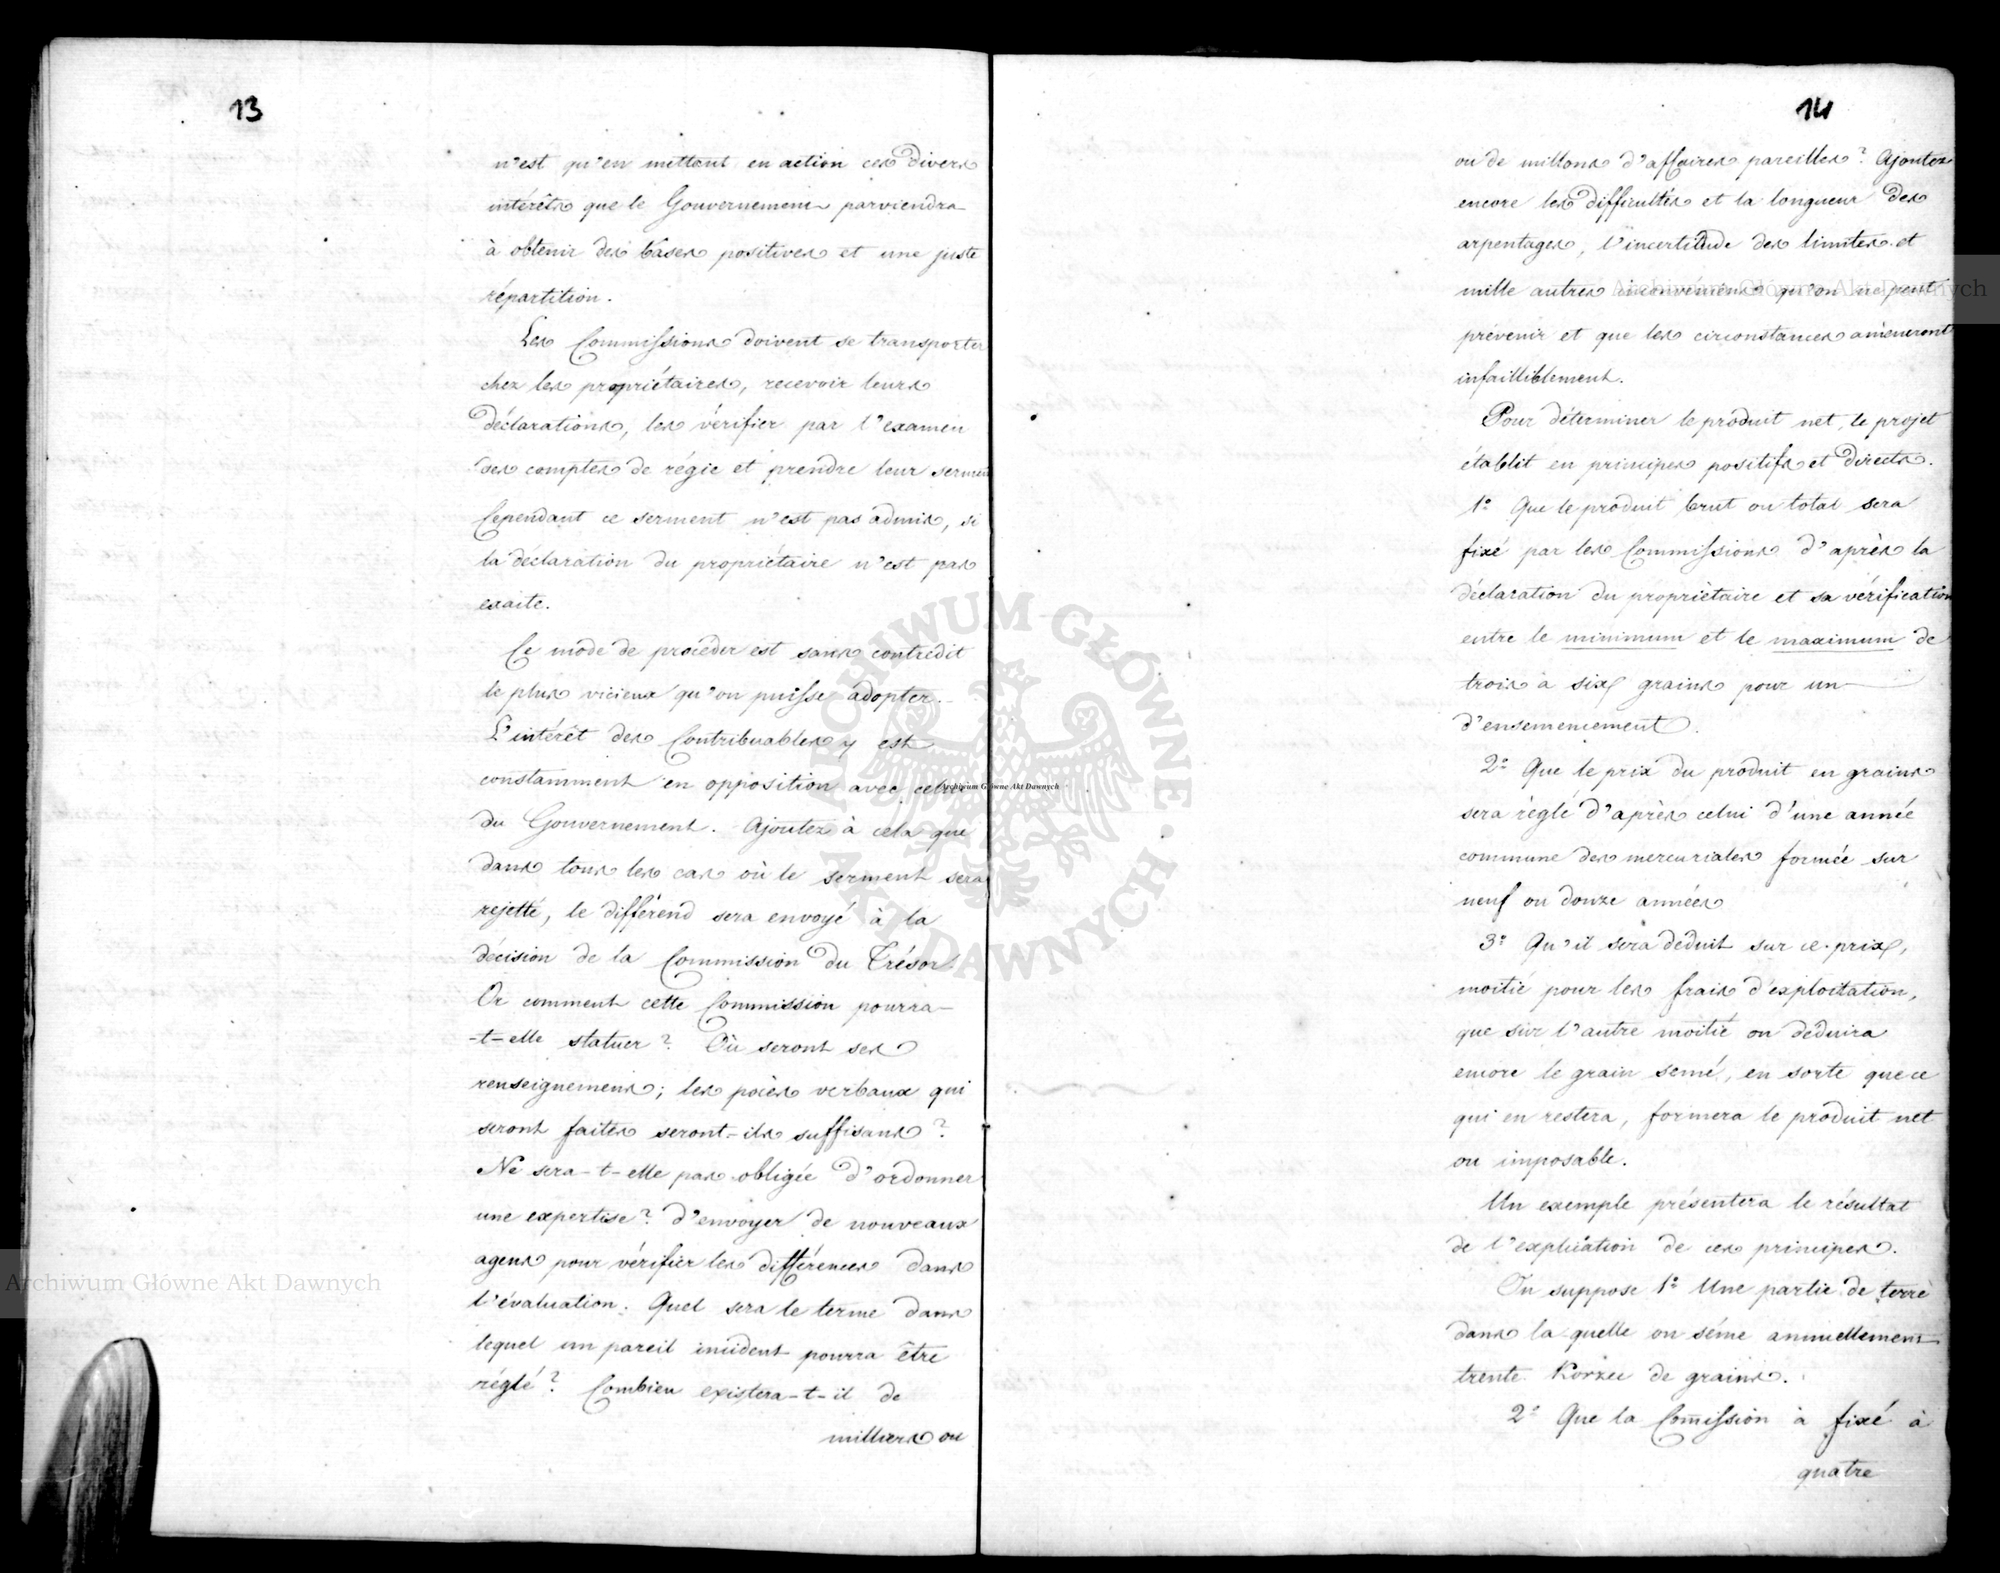 13
n'est qu'en mettant en action ces divers
intérêts que le Gouvernement parviendra
à obtenir des bases positives et une juste
répartition.
Les Commissions doivent se transporter
chez les propriétaires, recevoir leurs
déclarations, les vérifier par l'examen
des comptes de régie et prendre leur serment
Cependant ce serment n'est pas admis, si
la déclaration du propriétaire n'est pas
exacte.
Ce mode de procéder est sans contredit
le plus vicieux qu'on puisse adopter.
L'intérêt des Contribuables y est
constamment en opposition avec celui
du Gouvernement. Ajoutez à cela que
dans tous les cas où le serment sera
rejetté, le différend sera envoyé à la
décision de la Commission du Trésor.
Or comment cette Commission pourra-
-t-elle statuer? Où seront ses
renseignemens; les pocès verbaux qui
seront faites seront-ils suffisans?
Ne sera-t-elle pas obligée d'ordonner
une expertise? d'envoyer de nouveaux
agens pour vérifier les différences dans
l'évaluation. Quel sera le terme dans
lequel un pareil incident pourra être
réglé? Combien existera-t-il de
milliers ou
14
ou de millons d'affaires pareilles? Ajoutez
encore les difficultés et la longueur des
arpentages, l'incertitude des limites et
mille autres inconvéniens qu'on ne peut
prévenir et que les circonstances amèneront
infailliblement.
Pour déterminer le produit net, le projet
établit en principes positifs et directs.
1° Que le produit brut ou total sera
fixé par les Commissions d'après la
déclaration du propriétaire et sa vérification
entre le minimum et le maximum de
trois à six grains pour un
d'ensemencement.
2° Que le prix du produit en grains
sera réglé d'après celui d'une année
commune des mercuriales formée sur
neuf ou douze années
3° Qu'il sera déduit sur ce prix,
moitié pour les frais d'exploitation,
que sur l'autre moitié on déduira
encore le grain semé, en sorte que ce
qui en restera, formera le produit net
ou imposable.
Un exemple présentera le résultat
de l'explication de ces principes.
On suppose 1° Une partie de terre
dans la quelle on séme annuellement
trente Korzec de grains.
2° Que la Com̄ission à fixé à
quatre
Archiwum Główne Akt Dawnych
Archiwum Główne Akt Dawnych
Archiwum Główne Akt Dawnych
ARCHIWUM GŁÓWNE • AKT DAWNYCH